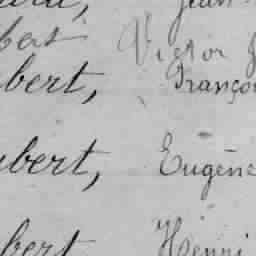 Jean
bert Victor
bert, Franço
bert, Eugène
bert Henri